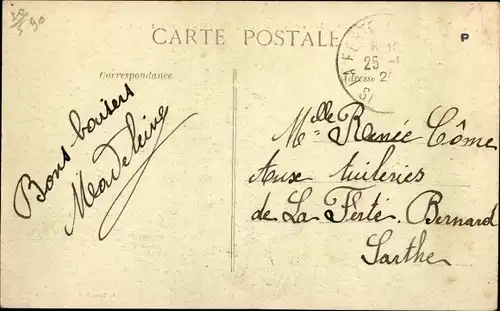 CARTE POSTALE
P
Correspondance
Adresse
25
Bons baisers
Madeleine
Mlle Renée Côme
Aux tuileries
de La Ferté. Bernard
Sarthe